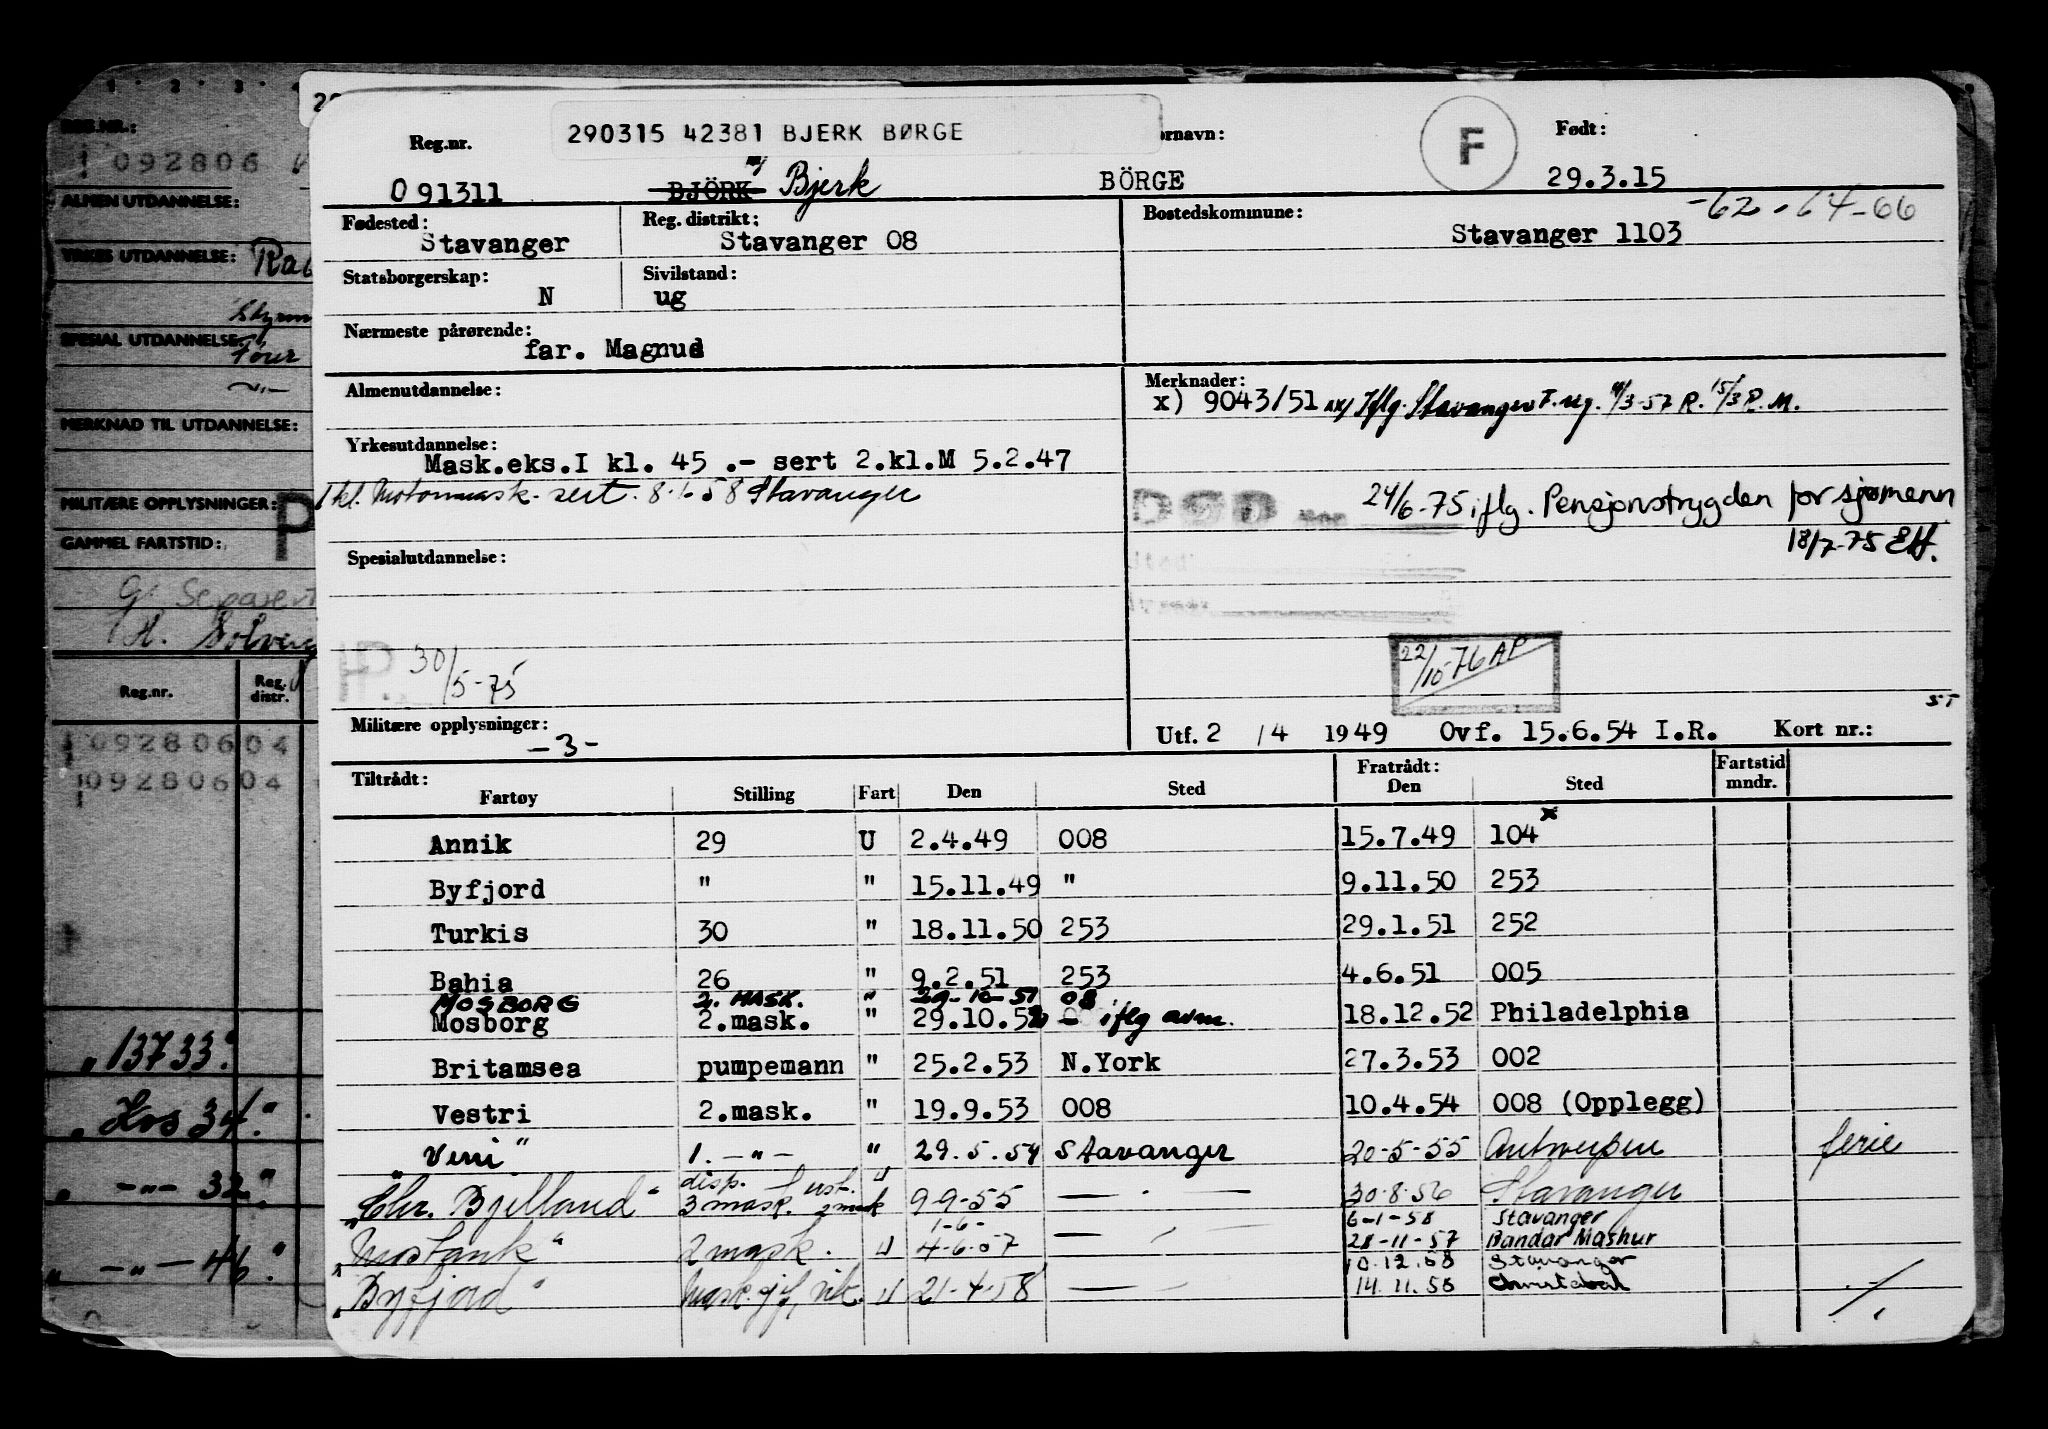 290315 42381 BJERK BØRGE
Reg.nr. Fornavn: F Født:
091311 BJÖRK Bjerk BÖRGE 29.3.15
Fødested: Stavanger Reg. distrikt: Stavanger 08 Bostedskommune: Stavanger 1103 -62-64-66
Statsborgerskap: N Sivilstand: ug
Nærmeste pårørende: far. Magnus
Almenutdannelse: Merknader:
x) 9043/51 xx) Iflg. Stavanger F.reg. /3-57 R. 15/3 R.M.
Yrkesutdannelse:
Mask.eks.I kl. 45 .- sert 2.kl.M 5.2.47
1 kl. Motormask. sert. 8.1.58 Stavanger
DØD 24/6-75 iflg. Pensjonstrygden for sjømenn
18/7-75 EH.
Spesialutdannelse:
30/5-75
22/10-76 AP
ST
Militære opplysninger: -3-
Utf. 2 /4 1949 Ovf. 15.6.54 I.R. Kort nr.:
Tiltrådt: Fratrådt: Fartstid
Fartøy Stilling Fart Den Sted Den Sted mndr.
Annik 29 U 2.4.49 008 15.7.49 104 x
Byfjord " " 15.11.49 " 9.11.50 253
Turkis 30 " 18.11.50 253 29.1.51 252
Bahia 26 " 9.2.51 253 4.6.51 005
MOSBORG 2. MASK. " 29-10-51 08
Mosborg 2.mask. " 29.10.52 - iflg avm. 18.12.52 Philadelphia
Britamsea pumpemann " 25.2.53 N.York 27.3.53 002
Vestri 2.mask. " 19.9.53 008 10.4.54 008 (Opplegg)
Veni" 1. -"- " 29.5.54 Stavanger 20-5-55 Antwerpen ferie
disp.
"Chr. Bjelland" 3 mask. 2 mask U 9-9-55 — 30-8-56 Stavanger
1-6- 6-1-58 Stavanger
"Mostank" 2 mask. U 4-6-57 — 28-11-57 Bandar Mashur
10.12.58 Stavanger
"Byfjord" U 21-4-58 — 14.11.58
REG.NR.:
092806
ALMEN UTDANNELSE:
YRKES UTDANNELSE:
SPESIAL UTDANNELSE:
MERKNAD TIL UTDANNELSE:
MILITÆRE OPPLYSNINGER: P
GAMMEL FARTSTID:
Reg.nr. Reg. distr.
092806 04
092806 04
"13733."
"Hvs 34."
" -"- 32."
" -"- 46."